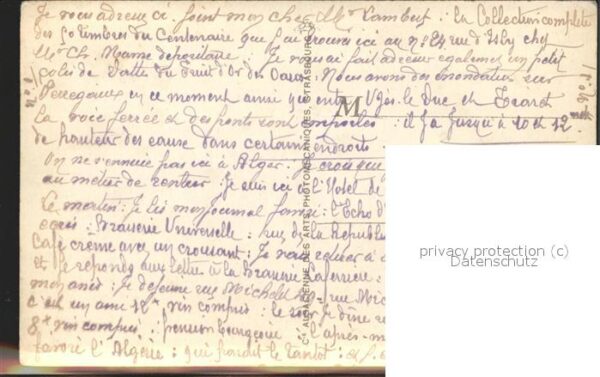 Je vous adresse ci joint mon cher Mr Lambert : la Collection complete
des 50 timbres du Centenaire que j'ai trouvé ici au n° 24 rue d'Isly chez
Mr Ch. dépositaire Je vous ai fait adresser également un petit
colis de Dattes du fruit d'Or des Oasis Nous avons des inondations sur
Perregaux en ce moment ainsi que entre Vger le Duc et Tearet
la voie ferrée et des ponts sont emportés : il y a jusqu'à 10 et 12 met
de hauteur des eaux dans certains endroits
On ne s'ennuie pas ici à Alger. Je crois que
au métier de rentier : Je suis ici à l'Hotel de
Le matin : Je lis mon journal : l'Echo d'
Brasserie Universelle : rue de la Républi
Café crème avec un croissant : Je
et je reponds aux lettres à la Brasserie Laferriere :
mon amis : Je dejeune rue Michelet rue Mic
c'est un ami 12 f vin compris : le soir Je dîne
8 f vin compris pension bourgeoise l'après-m
l'Algérie : qui parait le tantot :
Cie ALSACIENNE DES ARTS PHOTOMÉCANIQUES, STRASBOURG
M
privacy protection (c)
Datenschutz